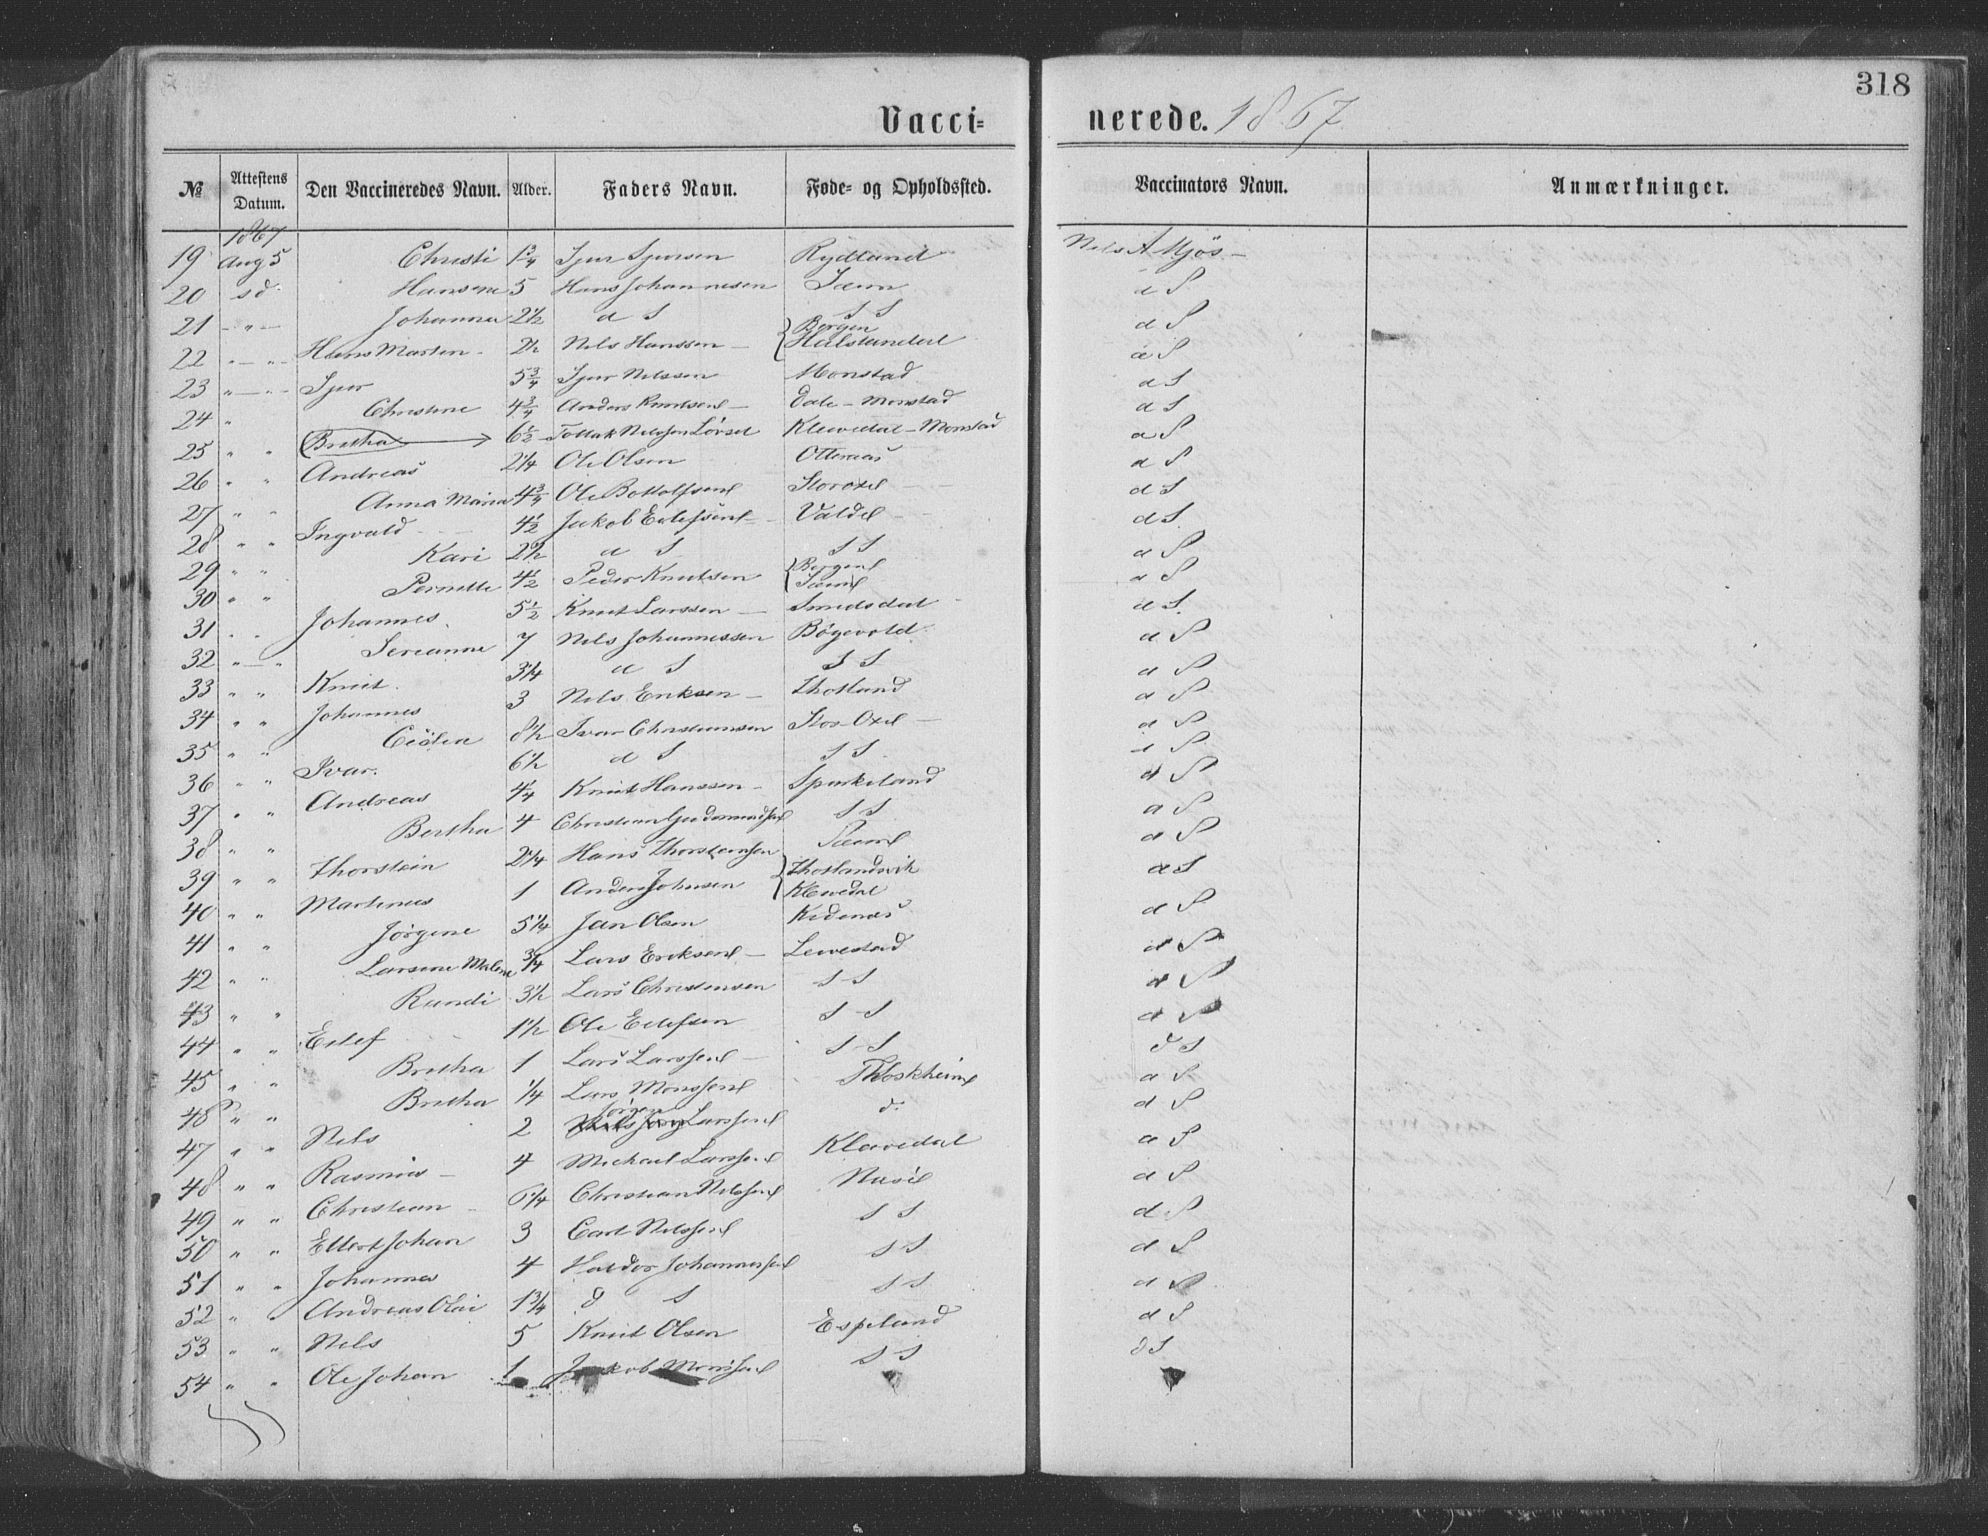 318
Vacci= nerede. 1867
№ Attestens Datum. Den Vaccineredes Navn. Alder. Faders Navn. Føde- og Opholdssted. Vaccinators Navn. Anmærkninger.
1867
19 Aug 5 Christi 1 3/4 Sjur Sjursen Rydland Nels A Mjös -
20 sd Hansene 5 Hans Johannesen Sæm d S
21 - " - Johanna 2 1/2 d S S S d S
22 " - " - Hans Marten - 2 1/2 Nels Hanssen - { Bergen Halstendal d S
23 " - " - Sjur 5 3/4 Sjur Nelssen Monstad d S
24 " Christine 4 3/4 Anders Knutsen - Dale - Monstad d S
25 " " Bretha 6 1/2 Tollak Nelssen Lörset Klevedal - Monstad d S
26 " " Andreas 2 1/4 Ole Olsen Ottereas d S
27 " " Anna Maria 4 3/4 Ole Bottolfsen Storoxel d S
28 " " Ingvald 4 1/2 Jakob Eelefsen - Valdel d S
29 " " Kari 2 1/2 d S S S d S
30 " " Pernelle 4 1/2 Peder Knutsen { Bergen Sæm d S
31 " " Johannes. 5 1/2 Knut Larssen - Smedsdal d S
32 " - " Sereanne 7 Nels Johannessen Bøgevold d S
33 " " Knut. 3 1/4 d S S S d S
34 " " Johannes 3 Nels Eriksen - Thotland d S
35 " " Ceölea 8 1/2 Ivar Christiansen Stor Oxel - d S
36 " " Ivar. 6 1/2 d S S S d S
37 " " Andreas 4 1/4 Knut Hanssen - Spurkeland d S
38 " " Bertha 4 Christian Gudmundsen S S d S
39 " " Thorstein 2 1/4 Hans Thorstensen Sæm d S
40 " " Martinus 1 Anders Johnsen { Thotlandsvik Klevedal d S
41 " " Jørgene 5 1/4 Jan Olsen Kidenæs d S
42 " " Larsine Malene 3/4 Lars Eriksen - Levestad d S
43 " " Randi 3 1/2 Lars Christensen S S d S
44 " " Eelef 1 1/2 Ole Eelefsen S S d S
45 " " Bretha 1 Lars Larssen - S S d S
46 " " Bretha 1/4 Lars Monssen Thoskheim d S
47 " " Nels 2 Jörgen Larssen d. d S
48 " " Rasmus - 4 Michael Larssen Klavedal d S
49 " " Christian - 6 1/4 Christian Nelssen Nusöe d S
50 " " Ellert Johan 3 Carl Nelssen S S d S
51 " " Johannes 4 Haldor Johannessen S S d S
52 " " Andreas Olai 1 3/4 d S S S d S
53 " " Nels 5 Knut Olsen Espeland d S
54 " " Ole Johan 1 Jakob Monssen S S d S